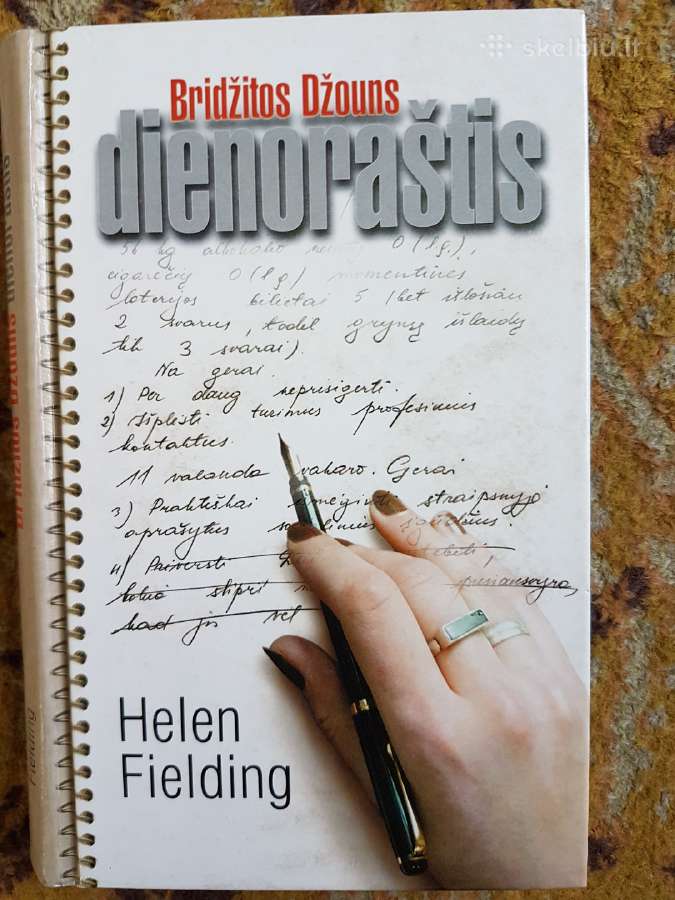 skelbiu.lt
Bridžitos Džouns
dienoraštis
56 kg alkoholio 0 (l.g.),
cigarečių 0 (l.g) momentinės
loterijos bilietai 5 (bet išlošiau
2 svarus, todėl grynųjų išlaidų
tik 3 svarai).
Na gerai.
1) Per daug neprisigerti.
2) Išplėsti turimus profesinius
kontaktus.
11 valanda vakaro. Gerai
3) Praktiškai straipsnyje
aprašytus
4) Priversti
stipri
kad jis vėl
Helen
Fielding
Bridžitos Džouns dienoraštis
Fielding